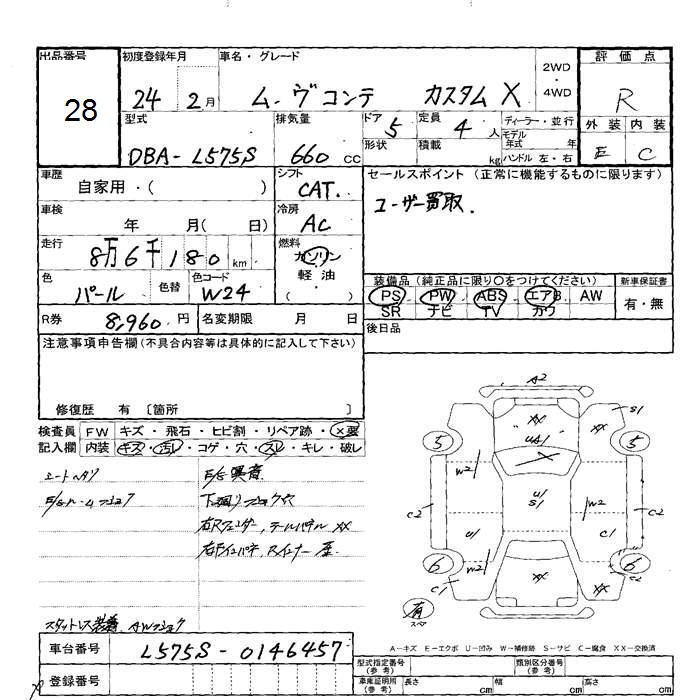 出品番号 初度登録年月 車名・グレード 2WD・4WD 評価点
28 24 2月 ムーヴコンテ カスタムX R
型式 排気量 ドア 5 定員 4人 ディーラー・並行 外装 内装
DBA-L575S 660cc 形状 積載 kg モデル年式 年 ハンドル 左・右 E C
車歴 自家用・( ) シフト CAT. セールスポイント (正常に機能するものに限ります)
車検 年 月( 日) 冷房 AC ユーザー買取.
走行 8万6千180km 燃料 ガソリン 軽油 ( )
色 パール 色替 色コード W24 装備品(純正品に限り〇をつけてください) 新車保証書
PS PW ABS エアB AW 有・無
SR ナビ TV カワ
R券 8,960円 名変期限 月 日 後日品
注意事項申告欄(不具合内容等は具体的に記入して下さい)
修復歴 有 〔箇所 〕
検査員 FW キズ・飛石・ヒビ割・リペア跡・X要
記入欄 内装 キズ・汚レ・コゲ・穴・スレ・キレ・破レ
シートヘタリ E/G異音
下回りショック穴
右Rフェンダー,テールパネル XX
スタットレス装着 AWショック
A2
S1
XX XX
UA1
5 5
W2 U/S1 W2
C2 C2
U1 C1
6 W2 6
C1 XX XX C2
有 スペア
A-キズ E-エクボ U-凹み W-補修跡 S-サビ C-腐食 XX-交換済
車台番号 L575S-0146457 型式指定番号(参考) 類別区分番号(参考)
登録番号 車庫証明用(参考) 長さ cm 幅 cm 高さ cm